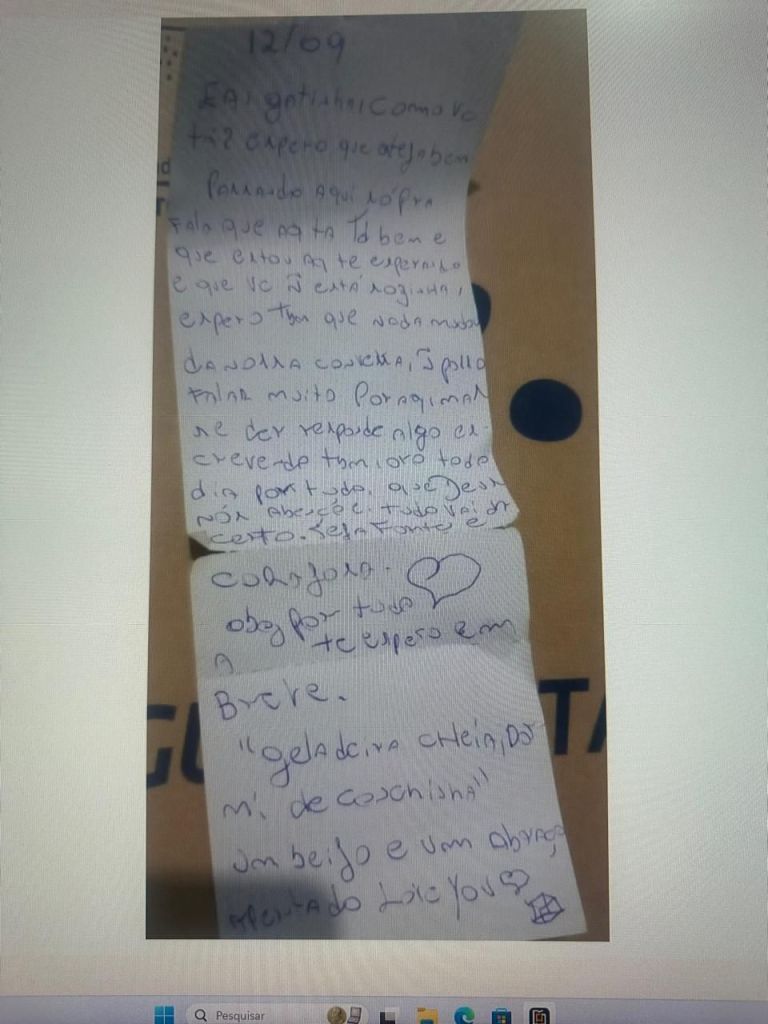 12/09
EAi gatinha, como vc
tá? espero que esteja bem
Passando Aqui só prA
FAlA que Aq tA Td bem e
que estou Aq te esperando
e que vc ñ está sozinha,
espero tbm que nada mudou
da nossa conversa, ñ posso
FAlAR muito Por aq, mas
se der responde algo es-
crevendo tbm, oro todo
diA por tudo, que Deus
nós Abençõe. tudo vai dr
certo. Seja Forte e
CORAJOSA.
obg por tudo
te espero em
A
Breve.
"gelAdeira cheiA, Dor
mi. de conchinha"
um beijo e um Abraço
Apertado Love You
GU
TA
Pesquisar